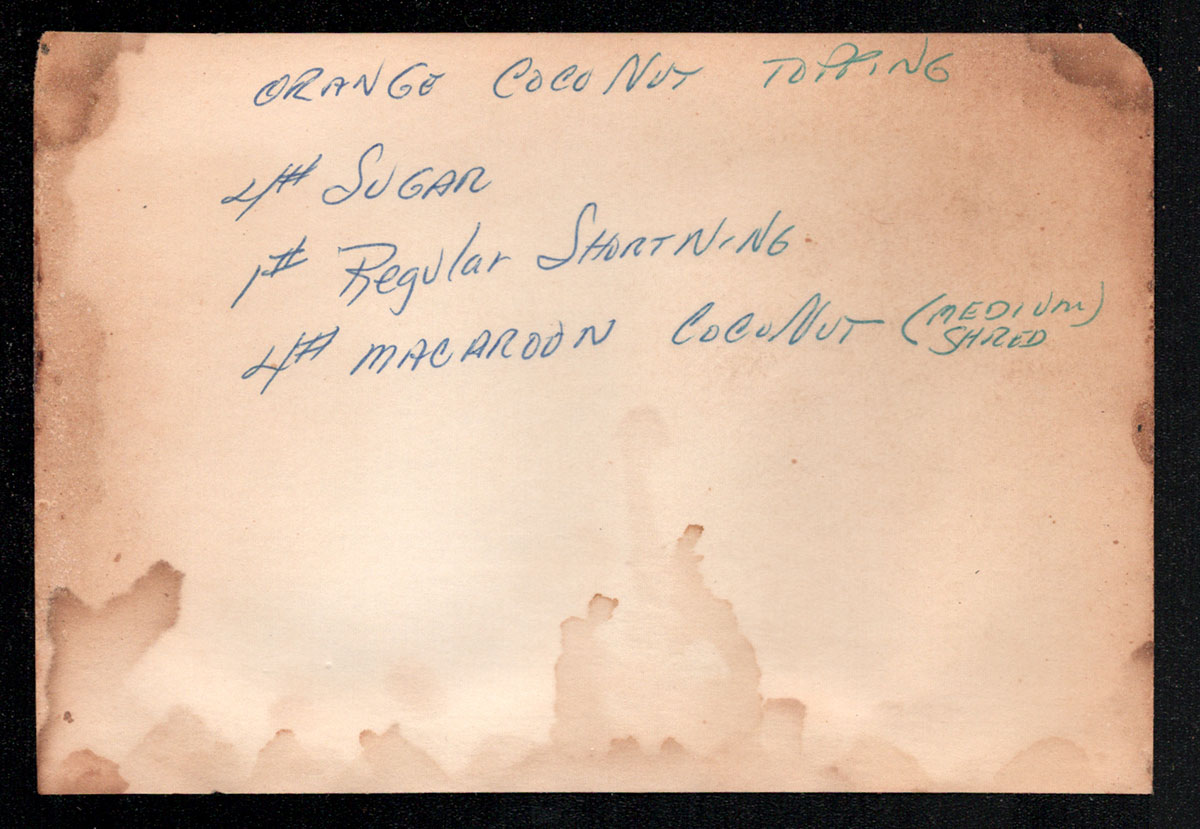 ORANGE COCONUT TOPPING
4# SUGAR
1# Regular SHORTNING
4# MACAROON COCONUT (MEDIUM)
SHRED